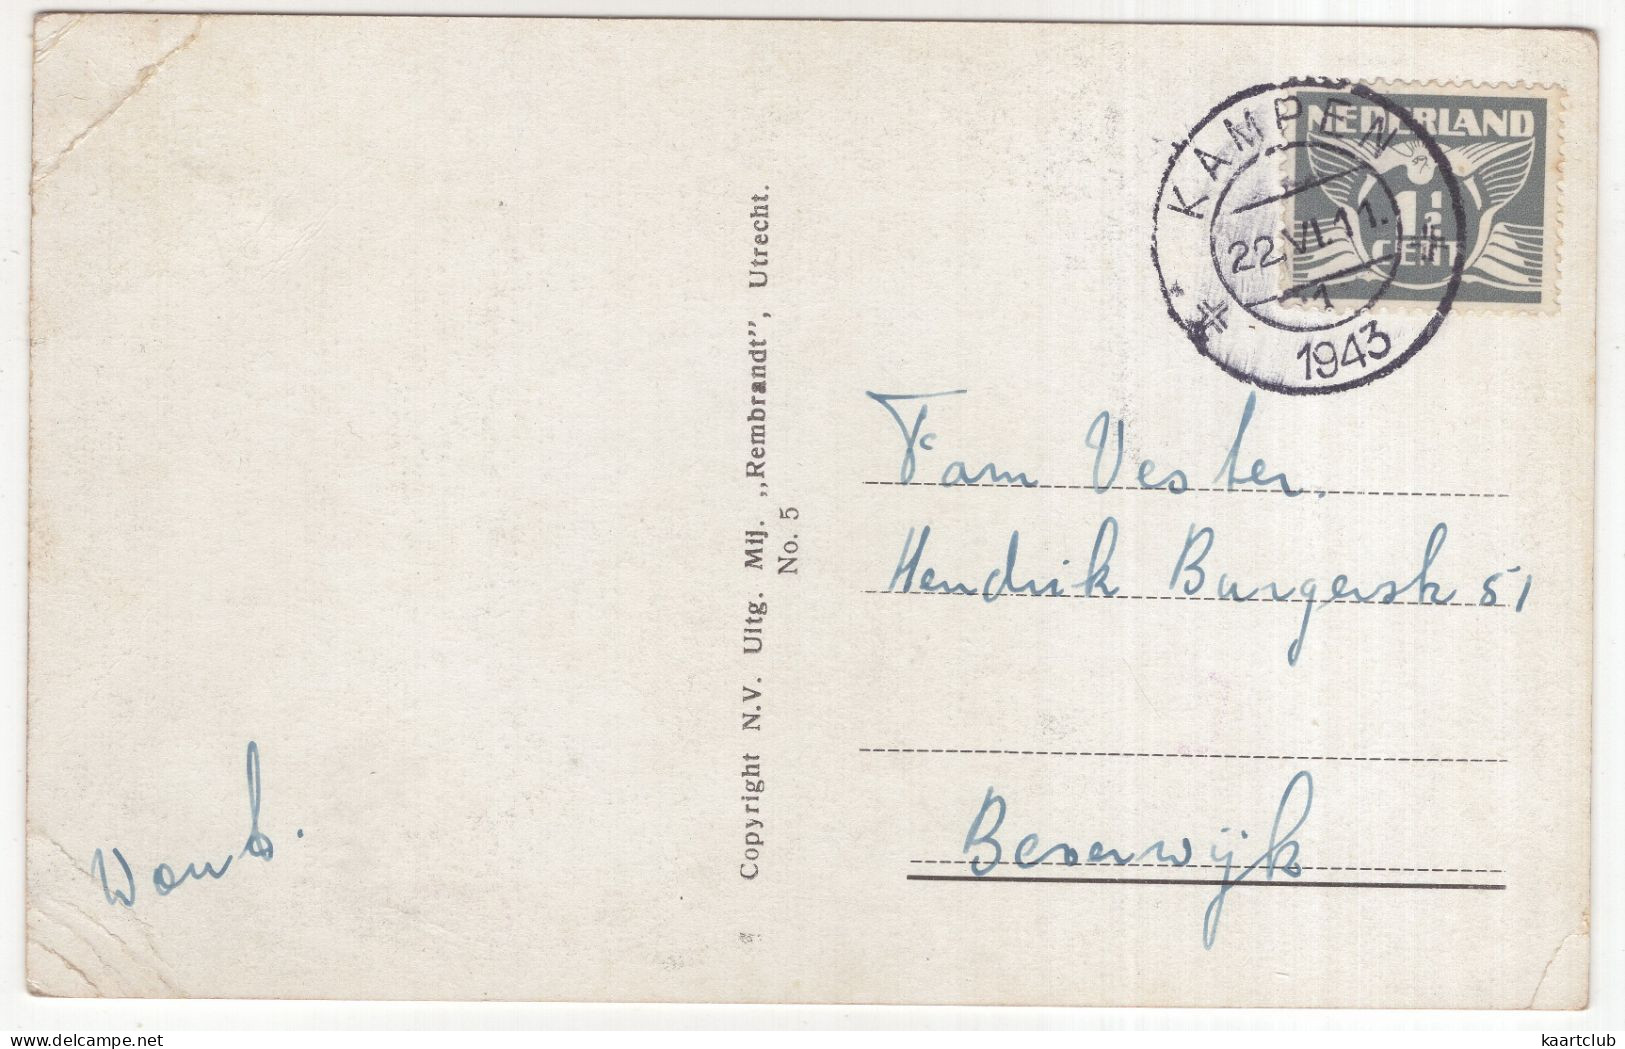 NEDERLAND
1½
CENT
KAMPEN
22.VI.11.
1
1943
Copyright N.V. Uitg. Mij. „Rembrandt”, Utrecht.
No. 5
Fam Vester.
Hendrik Burgersk 51
Beverwijk
www.delcampe.net
kaartclub